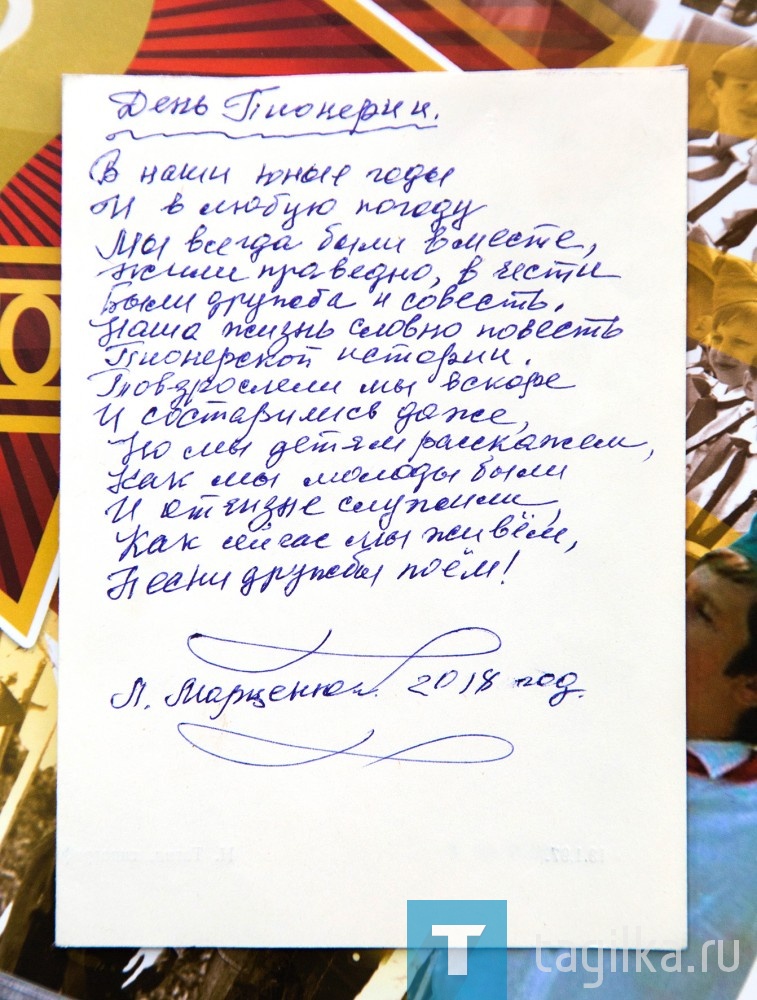 День Пионерии.
В наши юные годы
И в любую погоду
Мы всегда были вместе,
Жили праведно, в чести
Были дружба и совесть.
Наша жизнь словно повесть
Пионерской истории.
Повзрослели мы вскоре
И состарились даже,
Но мы детям расскажем,
Как мы молоды были
И отчизне служили,
Как сейчас мы живём,
Песни дружбы поём!
Л. Марценюк. 2018 год.
T tagilka.ru